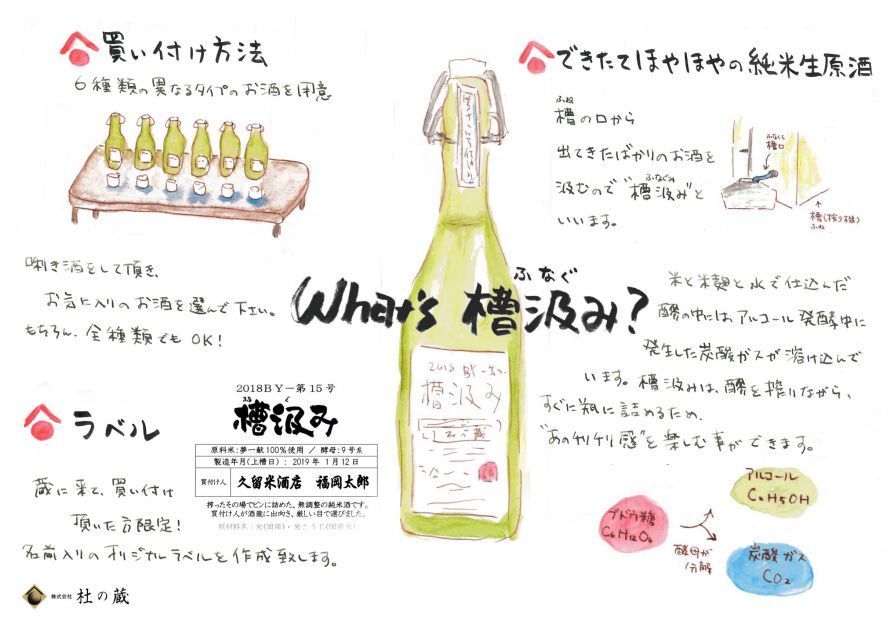 買い付け方法
6種類の異なるタイプのお酒を用意
唎き酒をして頂き、
お気に入りのお酒を選んで下さい。
もちろん、全種類でもOK!
ラベル
蔵に来て、買い付け
頂いた方限定!
名前入りのオリジナルラベルを作成致します。
2018BY－第15号
ふな く
槽汲み
原料米:夢一献100%使用 / 酵母:9号系
製造年月(上槽日): 2019年 1月12日
買付け人 久留米酒店 福岡太郎
搾ったその場でビンに詰めた、無調整の純米酒です。
買付け人が酒蔵に出向き、厳しい目で選びました。
原材料名:米(国産)・米こうじ(国産米)
株式会社 杜の蔵
ふなぐ
What's 槽汲み?
2018 BY
槽汲み
杜の蔵
できたてほやほやの純米生原酒
ふね
槽の口から
出てきたばかりのお酒を
ふなぐみ
汲むので"槽汲み"と
いいます。
ふなくち
槽口
槽(搾り機)
ふね
米と米麹と水で仕込んだ
醪の中には、アルコール発酵中に
発生した炭酸ガスが溶け込んで
います。槽汲みは、醪を搾りながら、
すぐに瓶に詰めるため、
"あのチリチリ感"を楽しむ事ができます。
ブドウ糖
C6H12O6
酵母が
分解
アルコール
C2H5OH
炭酸ガス
CO2